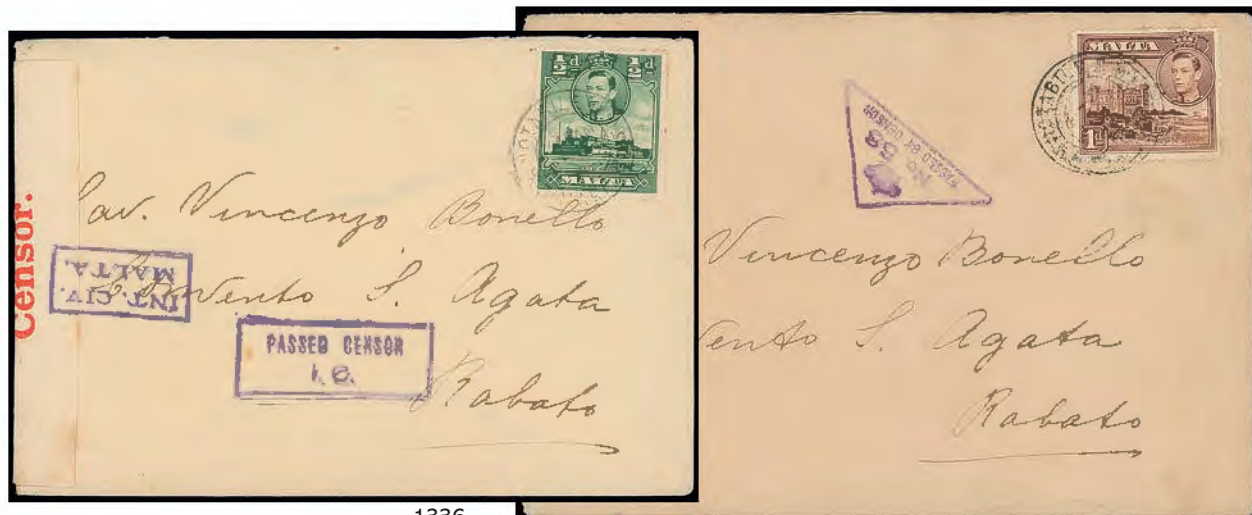 ½d ½d
MALTA
Censor.
Cav. Vincenzo Bonello
INT. CIV.
MALTA.
Convento S. Agata
PASSED CENSOR
I.C.
Rabato
MALTA
1d
PASSED BY CENSOR
No 38
Vincenzo Bonello
vento S. Agata
Rabato
1336